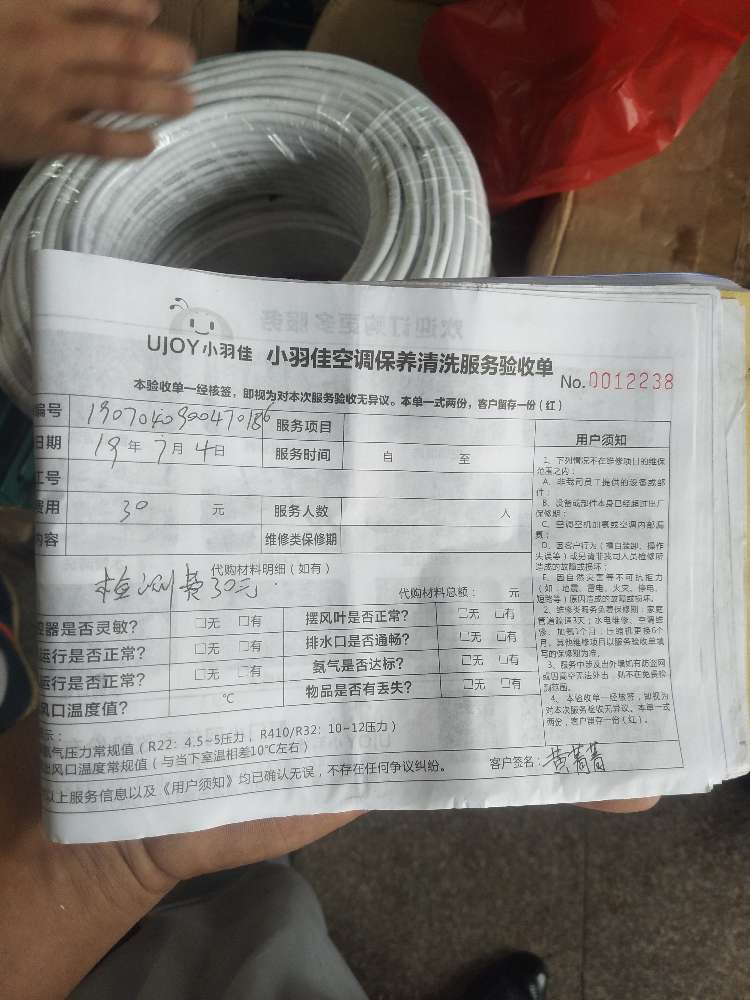 欢迎订购更多服务
UJOY小羽佳 小羽佳空调保养清洗服务验收单 No.0012238
本验收单一经核签，即视为对本次服务验收无异议。本单一式两份，客户留存一份（红）
编号 1907040900470186 服务项目
日期 19年7月4日 服务时间 自 至
工号
费用 30 元 服务人数 人
内容 维修类保修期
代购材料明细（如有）
检测费30元. 代购材料总额： 元
器是否灵敏？ □无 □有 摆风叶是否正常？ □无 □有
运行是否正常？ □无 □有 排水口是否通畅？ □无 □有
运行是否正常？ □无 □有 氨气是否达标？ □无 □有
风口温度值？ ℃ 物品是否有丢失？ □无 □有
示：
氨气压力常规值（R22：4.5~5压力，R410/R32：10~12压力）
出风口温度常规值（与当下室温相差10℃左右）
以上服务信息以及《用户须知》均已确认无误，不存在任何争议纠纷。 客户签名：黄菁菁
用户须知
1、下列情况不在维修项目的维保
范围之内：
A、非我司员工提供的设备或部
件；
B、设备或部件本身已经超过出厂
保修期；
C、空调空机加氨或空调内部漏
氨；
D、因客户行为（擅自装卸、操作
失误等）或另请非我司人员检修所
造成的故障或损坏；
E、因自然灾害等不可抗拒力
（如：地震、雷电、火灾、停电、
短路等）原因造成的故障或损坏。
2、维修类服务免费保修期：家庭
管道疏通3天；水电维修、空调维
修、加氨3个月，压缩机更换6个
月，其他维修项目以服务验收单填
写的保修期为准。
3、服务中涉及出外墙如有防盗网
或因高空无法外出，则不在免费检
测范围。
4、本验收单一经核签，即视为
对本次服务验收无异议。本单一式
两份，客户留存一份（红）。